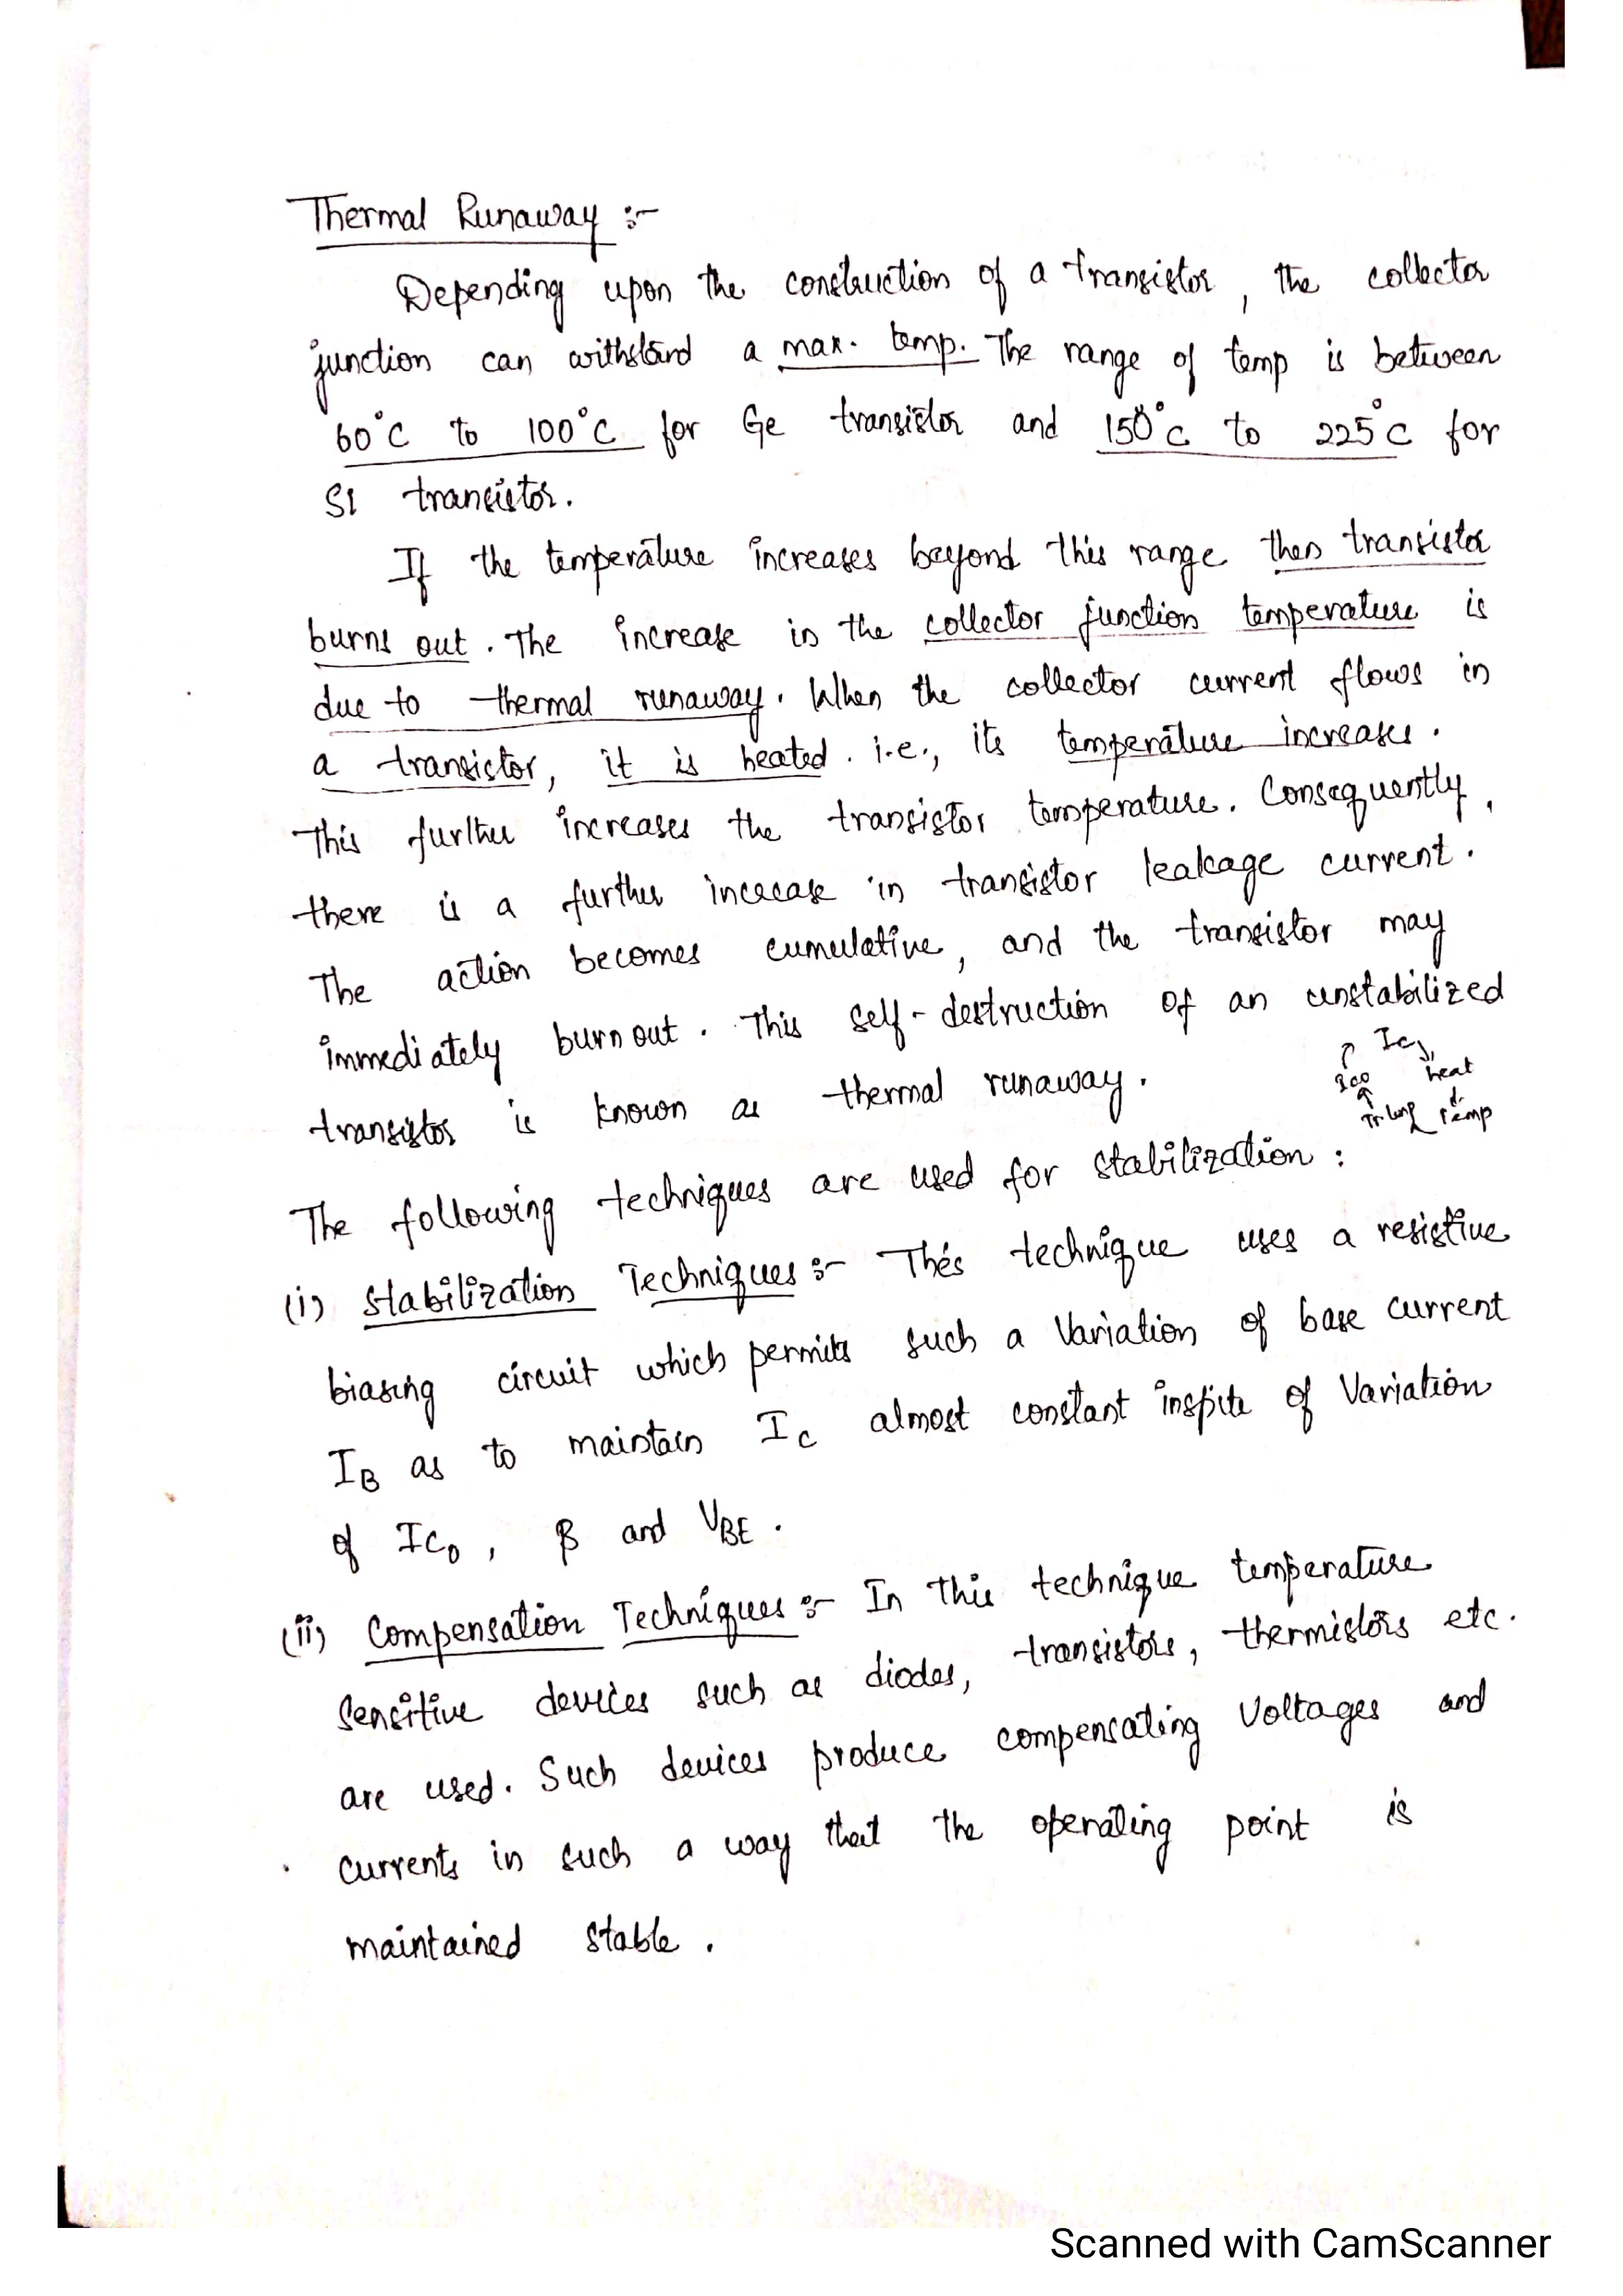 Thermal Runaway :-
Depending upon the construction of a transistor, the collector
junction can withstand a max. temp. The range of temp is between
60°C to 100°C for Ge transistor and 150°C to 225°C for
Si transistor.
If the temperature increases beyond this range then transistor
burns out. The increase in the collector junction temperature is
due to thermal runaway. When the collector current flows in
a transistor, it is heated. i.e., its temperature increases.
This further increases the transistor temperature. Consequently,
there is a further increase in transistor leakage current.
The action becomes cumulative, and the transistor may
immediately burn out. This self-destruction of an unstabilized
transistor is known as thermal runaway.
Ic
Ico heat
temp
The following techniques are used for stabilization :
(i) Stabilization Techniques :- This technique uses a resistive
biasing circuit which permits such a Variation of base current
IB as to maintain Ic almost constant inspite of Variation
of ICO, β and VBE.
(ii) Compensation Techniques :- In this technique temperature
Sensitive devices such as diodes, transistors, thermistors etc.
are used. Such devices produce compensating Voltages and
currents in such a way that the operating point is
maintained stable.
Scanned with CamScanner